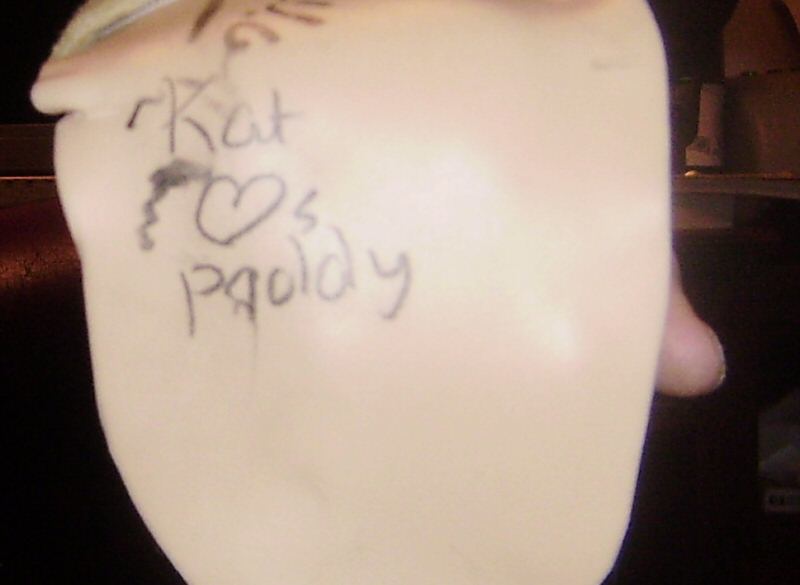 Kat
♡s
paddy